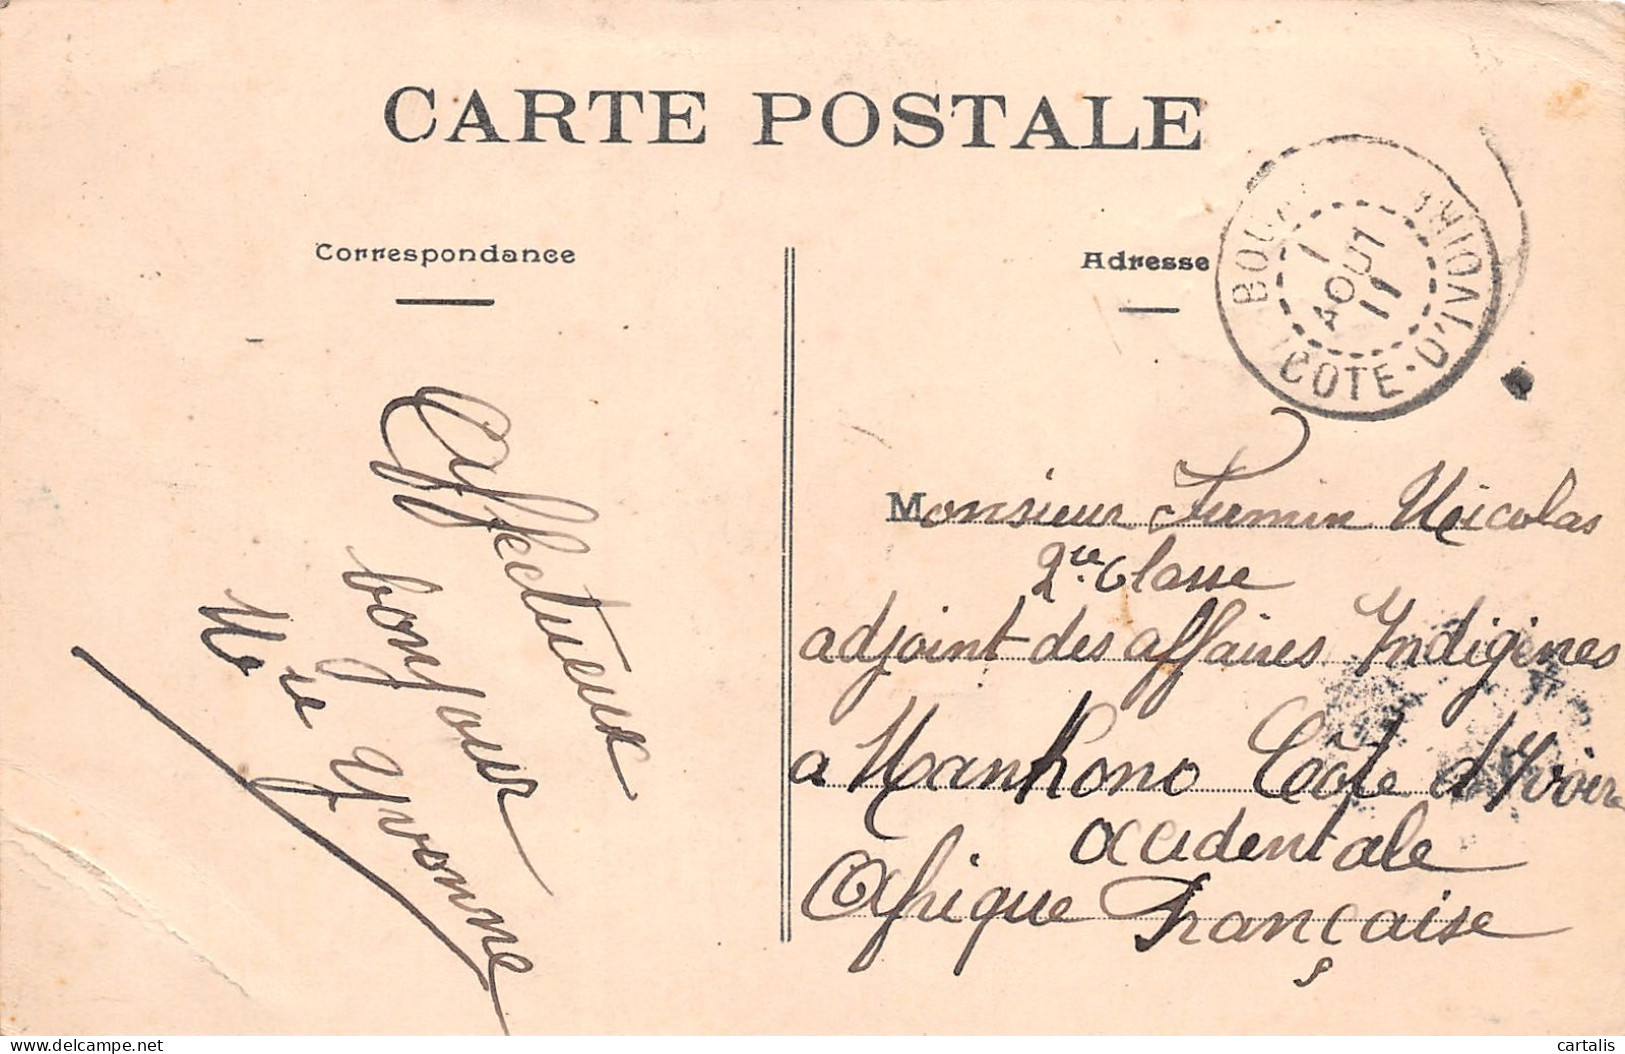 CARTE POSTALE
Correspondance
Adresse
CÔTE-D'IVOIRE
1
AOUT
11
Affectueux
bonjour
Yvonne
Monsieur Firmin Nicolas
2ie classe
adjoint des affaires Indigènes
a Mankono Côte d'Ivoire
occidentale
Afrique Française
cartalis
delcampe.net